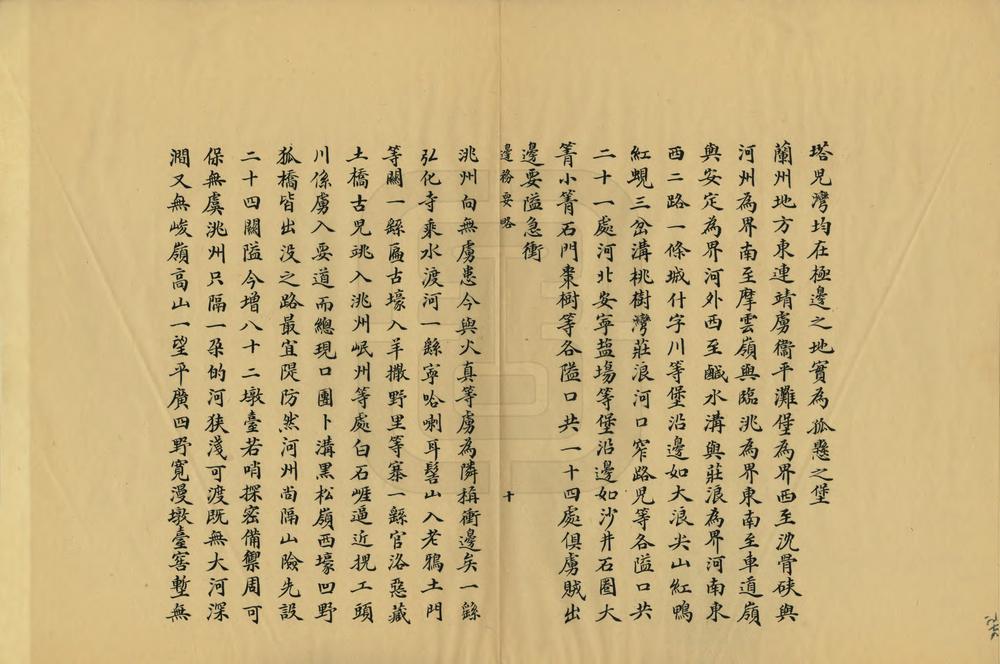 塔児灣均在極邊之地實為孤懸之堡
蘭州地方東連靖虜衞平灘堡為界西至沈骨硤與
河州為界南至摩雲嶺與臨洮為界東南至車道嶺
與安定為界河外西至鹹水溝與莊浪為界河南東
西二路一條城什字川等堡沿邊如大浪尖山紅鴨
紅蜆三岔溝桃樹灣莊浪河口窄路児等各隘口共
二十一處河北安寧塩場等堡沿邊如沙井石圈大
箐小箐石門棗樹等各隘口共一十四處俱虜賊出
邊要隘急衝
邊務要略
十
洮州向無虜患今與火真等虜為隣稱衝邊矣一繇
弘化寺乘水渡河一繇寜哈喇耳髻山入老鴉土門
等關一繇匾古壕入羊撒野里等寨一繇官洛惡藏
土橋古児跳入洮州岷州等處白石崕逼近挩工頭
川係虜入要道而總現口團卜溝黒松嶺西壕凹野
狐橋皆出没之路最宜隄防然河州尚隔山險先設
二十四關隘今增八十二墩臺若哨探宻備禦周可
保無虞洮州只隔一朶的河狹淺可渡既無大河深
澗又無峻嶺高山一望平廣四野寛漫墩臺窖塹無